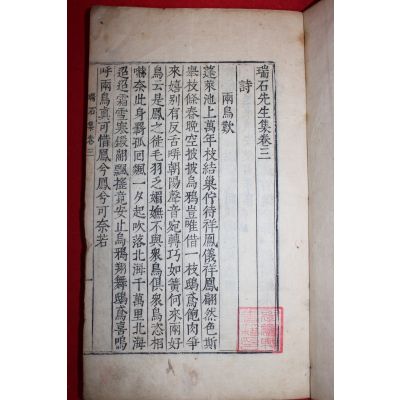 瑞石先生集卷三
詩
兩鳥歎
蓬萊池上萬年枝結巢佇待祥鳳儀祥鳳翩然色斯
擧枝條春晩空披披烏鴉豈唯借一枝鴟鳶飽肉爭
來嬉別有反舌哢朝陽聲音宛轉巧如簧何來兩好
鳥云是鳳之徒毛羽乏媚嫵不與衆鳥俱衆鳥恣相
嚇奈此身羇孤回飆一夕起吹落北海千萬里北海
迢迢霜雪寒鎩翮飄搖竟安止烏鴉翔舞鴟鳶喜嗚
呼兩鳥眞可惜鳳兮鳳兮可奈若
瑞石集卷三